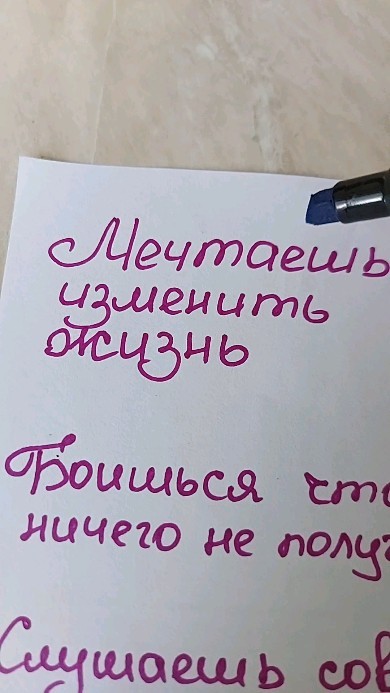 Мечтаешь
изменить
жизнь
Боишься
ничего не
Слушаешь